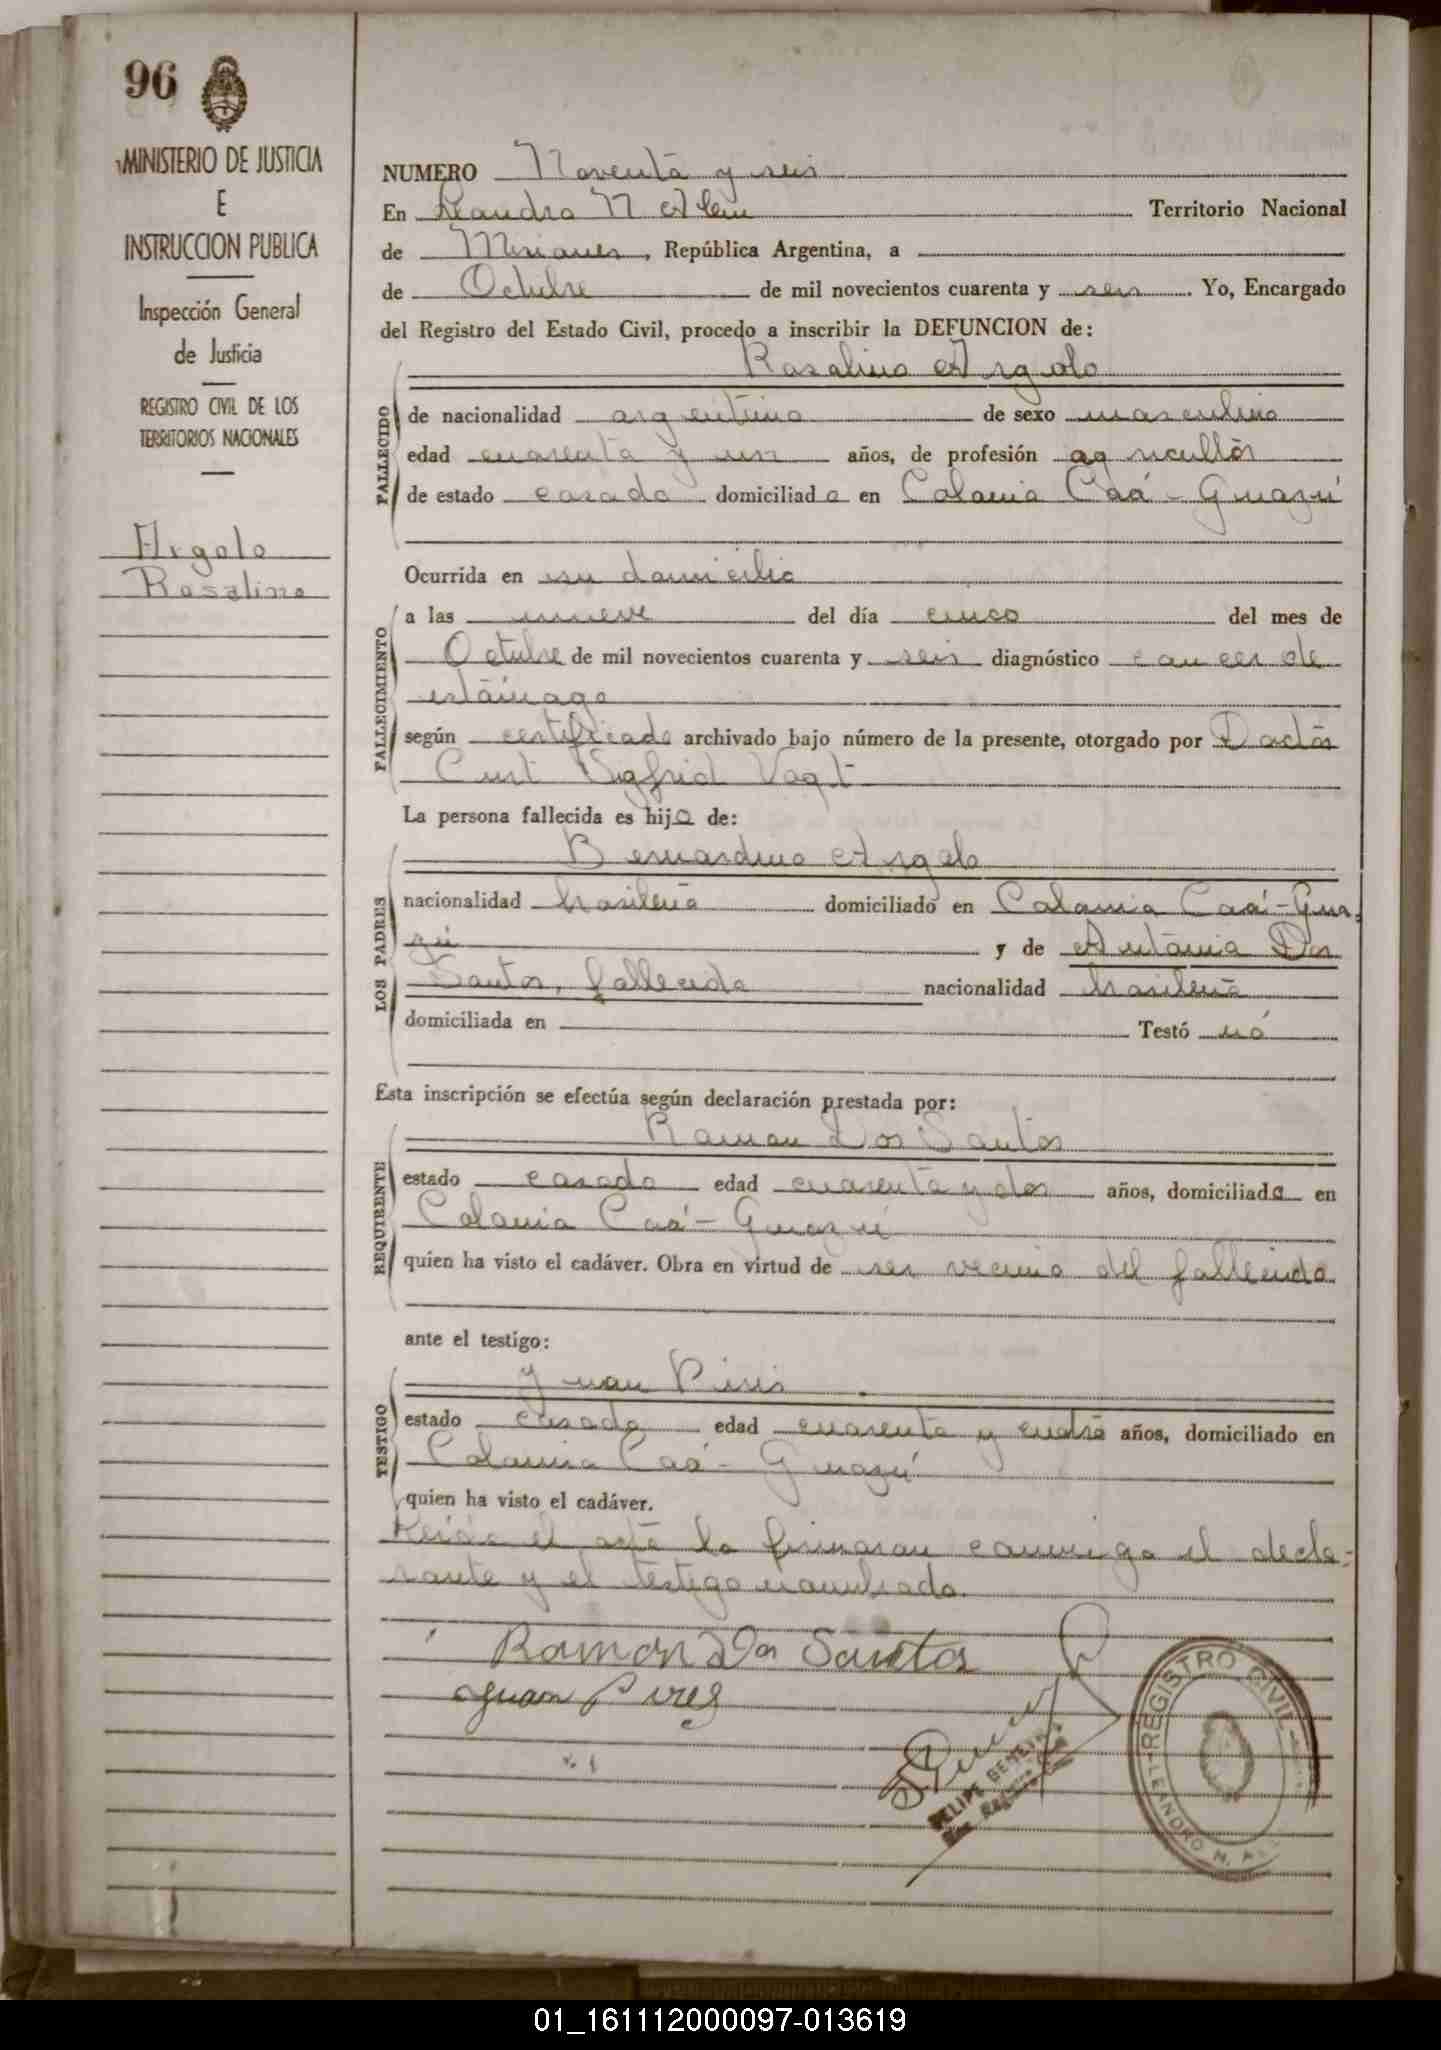 96
MINISTERIO DE JUSTICIA
E
INSTRUCCION PUBLICA
Inspección General
de Justicia
REGISTRO CIVIL DE LOS
TERRITORIOS NACIONALES
Argolo
Rosalino
NUMERO Noventa y seis
En Leandro N Alem Territorio Nacional
de Misiones, República Argentina, a
de Octubre de mil novecientos cuarenta y seis. Yo, Encargado
del Registro del Estado Civil, procedo a inscribir la DEFUNCION de:
Rosalino Argolo
FALLECIDO
de nacionalidad argentina de sexo masculino
edad cuarenta y un años, de profesión agricultor
de estado casado domiciliado en Colonia Caá-Guazú
Ocurrida en su domicilio
FALLECIMIENTO
a las nueve del día cinco del mes de
Octubre de mil novecientos cuarenta y seis diagnóstico cancer de
estómago
según certificado archivado bajo número de la presente, otorgado por Doctor
Curt Sigfrid Vogt
La persona fallecida es hijo de:
LOS PADRES
Bernardino Argolo
nacionalidad brasileña domiciliado en Colonia Caá-Gua-
zú y de Antonia Dos
Santos, fallecida nacionalidad brasileña
domiciliada en Testó nó
Esta inscripción se efectúa según declaración prestada por:
REQUIRENTE
Ramon Dos Santos
estado casado edad cuarenta y dos años, domiciliado en
Colonia Caá-Guazú
quien ha visto el cadáver. Obra en virtud de ser vecino del fallecido
ante el testigo:
TESTIGO
Juan Piris
estado casado edad cuarenta y cuatro años, domiciliado en
Colonia Caá-Guazú
quien ha visto el cadáver.
Leida el acta la firmaron conmigo el decla-
rante y el testigo nombrado.
Ramon Dos Santos
Juan Pires
FELIPE
REGISTRO CIVIL
LEANDRO N.
01_161112000097-013619